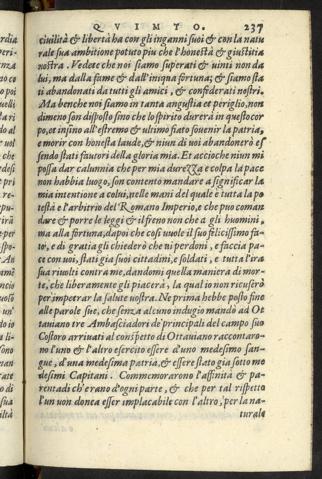 QVIMTO. 237
ciuilità & libertà ha con gli inganni suoi & con la natu
rale sua ambitione potuto piu che l'honestà & giustitia
nostra. Vedete che noi siamo superati & uinti non da
lui, ma dalla fame & dall'iniqua fortuna; & siamo sta
ti abandonati da tutti gli amici, & confiderati nostri.
Ma benche noi siamo in tanta angustia et periglio, non
dimeno son disposto sino che lo spirito durerà in questo cor
po, et insino all'estremo & ultimo fiato souenir la patria,
e morir con honesta laude, & niun di uoi abandonerò es
sendo stati fautori della gloria mia. Et accioche niun mi
possa dar calunnia che per mia durezza e colpa la pace
non habbia luogo, son contento mandare a significar la
mia intentione a colui, nelle mani del quale è tutta la po
testà e l'arbitrio del Romano Imperio, e che puo coman
dare & porre le leggi & il freno non che a gli huomini,
ma alla fortuna, dapoi che cosi uuole il suo felicissimo fa
to, e di gratia gli chiederò che ui perdoni, e faccia pa-
ce con uoi, stati gia suoi cittadini, e soldati, e tutta l'ira
sua riuolti contra me, dandomi quella maniera di mor-
te, che liberamente gli piacerà, la qual io non ricuserò
per impetrar la salute uostra. Ne prima hebbe posto fine
alle parole sue, che senza alcuno indugio mandò ad Ot
tauiano tre Ambasciadori de principali del campo suo
Costoro arriuati al conspetto di Ottauiano raccontaro-
no l'uno & l'altro esercito essere d'uno medesimo san-
gue, d'una medesima patria, & essere stato gia sotto me
desimi Capitani. Commemorarono l'affinità & pa-
rentadi ch'erano d'ogni parte, & che per tal rispetto
l'un uon donea esser implacabile con l'altro, per la na-
turale